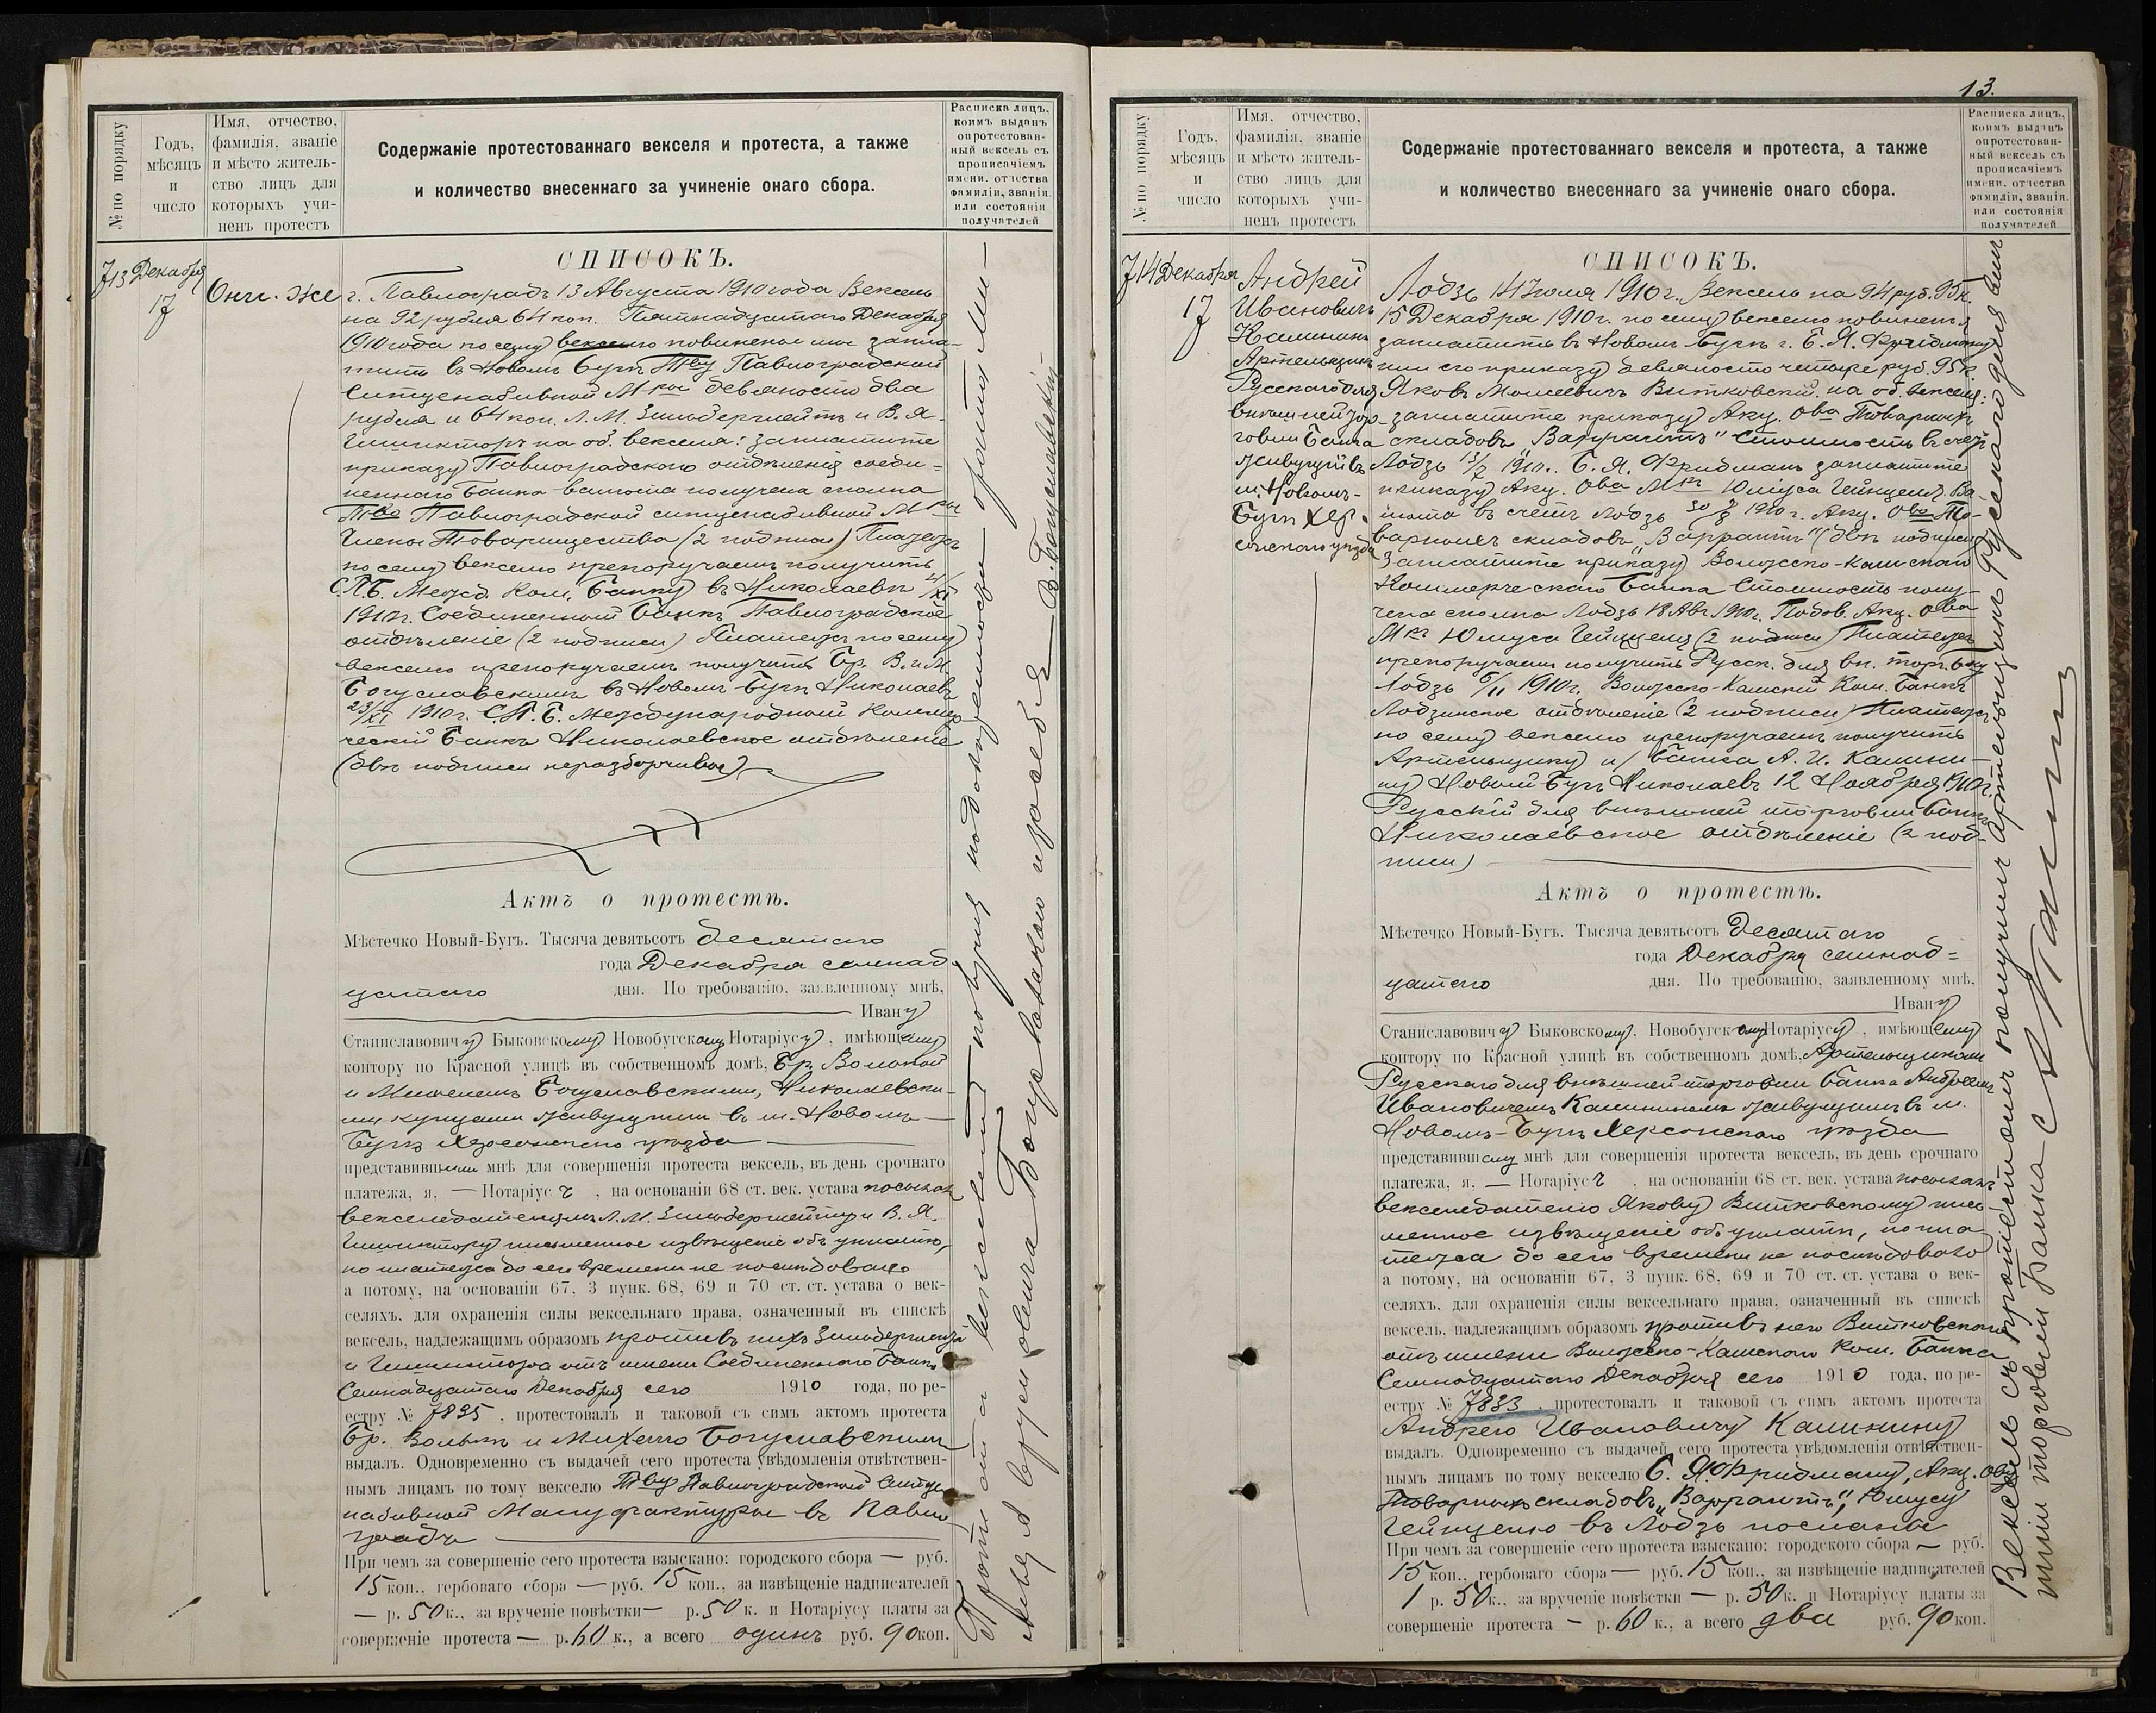 № по порядку
Годъ,
мѣсяцъ
и
число
Имя, отчество,
фамилія, званіе
и мѣсто житель-
ство лицъ для
которыхъ учи-
ненъ протестъ
Содержаніе протестованнаго векселя и протеста, а также
и количество внесеннаго за учиненіе онаго сбора.
Расписка лицъ,
коимъ выданъ
опротестован-
ный вексель съ
прописаніемъ
имени, отчества
фамиліи, званія
или состоянія
получателей
713
Декабря
17
Они-же
СПИСОКЪ.
г. Павлоградъ 13 Августа 1910 года Вексель
на 92 рубля 64 коп. Пятнадцатаго Декабря
1910 года по сему векселю повинены мы запла-
тить въ Новомъ Бугѣ Тву Павлоградской
Ситценабивной Мры девяносто два
рубля и 64 коп. Л. М. Зильбершейтъ и В. Я.
на об. векселя: заплатите
приказу Павлоградскаго отдѣленія соеди-
неннаго Банка валюта получена сполна
Тво Павлоградской ситценабивной Мры
Члены Товарищества (2 подписи) Платежъ
по сему векселю препоручаемъ получить
С.П.Б. Межд. Ком. Банку въ Николаевѣ
1910 г. Соединенный Банкъ Павлоградское
отдѣленіе (2 подписи) Платежъ по сему
векселю препоручаемъ получить Бр. В. и М.
Богуславскимъ въ Новомъ-Бугѣ Николаевъ
23/XI 1910 г. С.П.Б. Международный Коммер
ческій Банкъ Николаевское отдѣленіе
(двѣ подписи неразборчивые)
Актъ о протестѣ.
Мѣстечко Новый-Бугъ. Тысяча девятьсотъ десятаго
года Декабря семнад
цатаго дня. По требованію, заявленному мнѣ,
Ивану
Станиславовичу Быковскому Новобугскому Нотаріусу, имѣющему
контору по Красной улицѣ въ собственномъ домѣ, Бр. Вольфой
и Михелемъ Богуславскими, Николаевски-
ми купцами живущими въ м. Новомъ
Бугѣ Херсонскаго уѣзда
представившими мнѣ для совершенія протеста вексель, въ день срочнаго
платежа, я, — Нотаріусъ, на основаніи 68 ст. век. устава посылалъ
векселедателямъ Л. М. Зильбершейту и В. Я.
письменное извѣщеніе объ уплатѣ,
но платежа до сего времени не послѣдовало
а потому, на основаніи 67, 3 пунк. 68, 69 и 70 ст. ст. устава о век-
селяхъ, для охраненія силы вексельнаго права, означенный въ спискѣ
вексель, надлежащимъ образомъ противъ нихъ Зильбершейта
и отъ имени Соединеннаго Банка
Семнадцатаго Декабря сего 1910 года, по ре-
естру № 7835, протестовалъ и таковой съ симъ актомъ протеста
Бр. Вольфѣ и Михелю Богуславскимъ
выдалъ. Одновременно съ выдачей сего протеста увѣдомленія отвѣтствен-
нымъ лицамъ по тому векселю Тву Павлоградской Ситце
набивной Мануфактуры въ Павло
градъ
При чемъ за совершеніе сего протеста взыскано: городского сбора — руб.
15 коп., гербоваго сбора — руб. 15 коп., за извѣщеніе надписателей
— р. 50 к., за врученіе повѣстки — р. 50 к. и Нотаріусу платы за
совершеніе протеста — р. 60 к., а всего одинъ руб. 90 коп.
13.
№ по порядку
Годъ,
мѣсяцъ
и
число
Имя, отчество,
фамилія, званіе
и мѣсто житель-
ство лицъ для
которыхъ учи-
ненъ протестъ
Содержаніе протестованнаго векселя и протеста, а также
и количество внесеннаго за учиненіе онаго сбора.
Расписка лицъ,
коимъ выданъ
опротестован-
ный вексель съ
прописаніемъ
имени, отчества
фамиліи, званія
или состоянія
получателей
714
Декабря
17
Андрей
Ивановичъ
Калининъ
Артельщикъ
Русскаго для
внѣшней тор-
говли Банка
живущій въ
м. Новомъ-
Бугѣ Хер-
сонскаго уѣзда
СПИСОКЪ.
Лодзь 14 Іюля 1910 г. Вексель на 94 руб. 95 к.
15 Декабря 1910 г. по сему векселю повиненъ я
заплатить въ Новомъ Бугѣ г. Б. Я. Фридману
или его приказу девяносто четыре руб. 95 к
Яковъ Моисеевичъ Витковскій. на об. векселя:
заплатите приказу Акц. Ова Товарныхъ
складовъ „Варрантъ" Стоимость въ счетъ
Лодзь 13/7 1910 г. Б. Я. Фридманъ заплатите
приказу Акц. Ова Мръ Юліуса Гейнцеля. Ва-
люта въ счетъ Лодзь 1910 г. Акц. Ово То-
варныхъ складовъ „Варрантъ" (двѣ подписи)
заплатите приказу Волжско-Камскаго
Коммерческаго Банка Стоимость полу-
чена сполна Лодзь 18 Авг. 1910 г. Акц. Ова
Мръ Юліуса Гейнцеля (2 подписи) Платежъ
препоручаемъ получить Русск. для вн. торг. Б-ку
Лодзь 1910 г. Волжско-Камскій Ком. Банкъ
Лодзинское отдѣленіе (2 подписи) Платежъ
по сему векселю препоручаемъ получить
Артельщику н/ Банка А. И. Калини-
ну Новый Бугъ Николаевъ 12 Ноября 1910 г.
Русскій для внѣшней торговли Банкъ
Николаевское отдѣленіе (2 под-
писи)
Актъ о протестѣ.
Мѣстечко Новый-Бугъ. Тысяча девятьсотъ десятаго
года Декабря семнад=
цатаго дня. По требованію, заявленному мнѣ,
Ивану
Станиславовичу Быковскому, Новобугскому Нотаріусу, имѣющему
контору по Красной улицѣ въ собственномъ домѣ, Артельщикомъ
Русскаго для внѣшней торговли Банка Андреемъ
Ивановичемъ Калининымъ живущимъ въ м.
Новомъ-Бугѣ Херсонскаго уѣзда
представившему мнѣ для совершенія протеста вексель, въ день срочнаго
платежа, я, — Нотаріусъ, на основаніи 68 ст. век. устава посылалъ
векселедателю Якову Витковскому пись-
менное извѣщеніе объ уплатѣ, но пла
тежа до сего времени не послѣдовало
а потому, на основаніи 67, 3 пунк. 68, 69 и 70 ст. ст. устава о век-
селяхъ, для охраненія силы вексельнаго права, означенный въ спискѣ
вексель, надлежащимъ образомъ противъ него Витковскаго
отъ имени Волжско-Камскаго Ком. Банка
Семнадцатаго Декабря сего 1910 года, по ре-
естру № 7833, протестовалъ и таковой съ симъ актомъ протеста
Андрею Ивановичу Калинину
выдалъ. Одновременно съ выдачей сего протеста увѣдомленія отвѣтствен-
нымъ лицамъ по тому векселю Б. Я. Фридману, Акц. Ову
Товарныхъ складовъ „Варрантъ", Юлиусу
Гейнцелю въ Лодзь посланы
При чемъ за совершеніе сего протеста взыскано: городского сбора — руб.
15 коп., гербоваго сбора — руб. 15 коп., за извѣщеніе надписателей
1 р. 50 к., за врученіе повѣстки — р. 50 к. и Нотаріусу платы за
совершеніе протеста — р. 60 к., а всего два руб. 90 коп.
Вексель съ протестомъ получилъ артельщикъ Русскаго для внѣш
торговли Банка